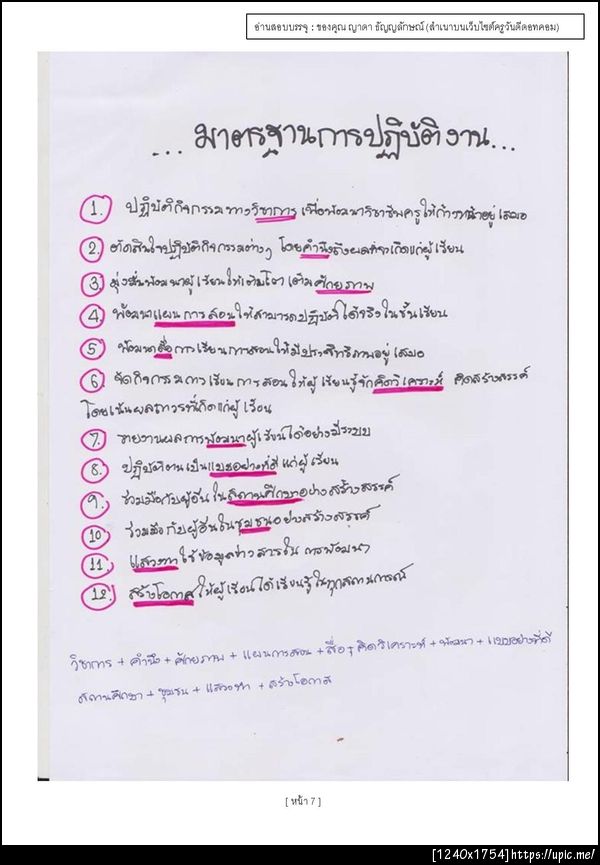 อ่านสอบบรรจุ : ของคุณ ญาดา ธัญญลักษณ์ (สำเนาบนเว็บไซต์ครูวันดีดอทคอม)
... มาตรฐานการปฏิบัติงาน ...
1. ปฏิบัติกิจกรรมทางวิชาการ เพื่อพัฒนาวิชาชีพครูให้ก้าวหน้าอยู่เสมอ
2. ตัดสินใจปฏิบัติกิจกรรมต่างๆ โดยคำนึงถึงผลที่จะเกิดแก่ผู้เรียน
3. มุ่งมั่นพัฒนาผู้เรียนให้เติบโต เต็มศักยภาพ
4. พัฒนาแผนการสอนให้สามารถปฏิบัติได้จริงในชั้นเรียน
5. พัฒนาสื่อการเรียนการสอนให้มีประสิทธิภาพอยู่เสมอ
6. จัดกิจกรรมการเรียนการสอนให้ผู้เรียนรู้จักคิดวิเคราะห์ คิดสร้างสรรค์
โดยเน้นผลถาวรที่เกิดแก่ผู้เรียน
7. รายงานผลการพัฒนาผู้เรียนได้อย่างมีระบบ
8. ปฏิบัติตนเป็นแบบอย่างที่ดีแก่ผู้เรียน
9. ร่วมมือกับผู้อื่นในสถานศึกษาอย่างสร้างสรรค์
10 ร่วมมือกับผู้อื่นในชุมชนอย่างสร้างสรรค์
11. แสวงหาใช้ข้อมูลข่าวสารใน การพัฒนา
12. สร้างโอกาสให้ผู้เรียนได้เรียนรู้ในทุกสถานการณ์
วิชาการ + คำนึง + ศักยภาพ + แผนการสอน + สื่อ + คิดวิเคราะห์ + พัฒนา + แบบอย่างที่ดี
สถานศึกษา + ชุมชน + แสวงหา + สร้างโอกาส
[ หน้า 7 ]
[1240x1754]https://upic.me/